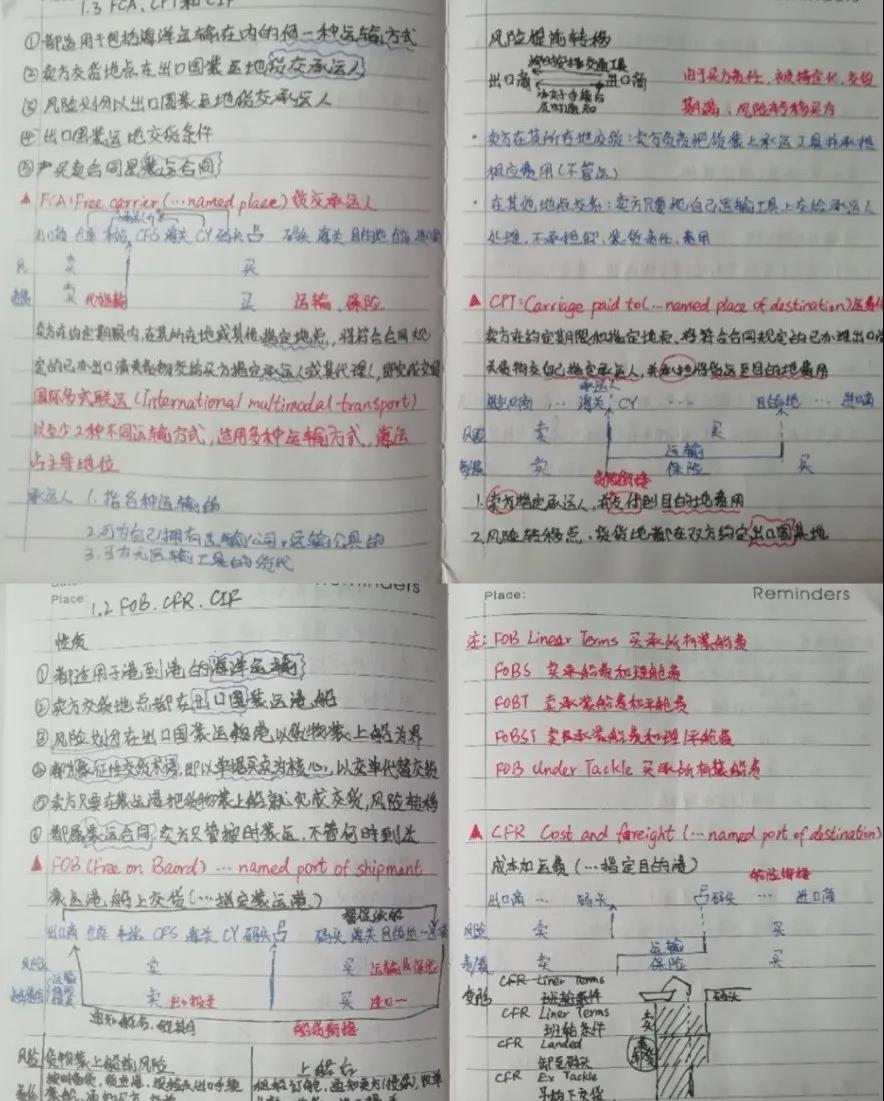 1.3 FCA、CPT和CIP
①都适用于包括海洋运输在内的何一种运输方式
②卖方交货地点在出口国装运地货交承运人
③风险划分以出口国装运地货交承运人
④出口国装运地交货条件
⑤买卖合同是装运合同
▲ FCA:Free carrier(…named place)货交承运人
出口商 仓库 车站 CFS 海关 CY 码头 占 码头 海关 目的地 仓库 进口商
风 卖 买
卖 代办运输 买 运输、保险
卖方在约定期限内,在其所在地或其他指定地点,将符合合同规
定的已办出口清关货物交给买方指定承运人或其代理人,即完成交货
国际多式联运(International multimodal transport)
以至少2种不同运输方式,适用多种运输方式,海运
占主导地位
承运人 1.指各种运输的
2.可为自己拥有运输公司、运输工具的
3.可为无运输工具的货代
风险提前转移
出口商 进口商
由于买方责任,被特定化,交货
期满,风险转移买方
· 卖方在其所在地交货:卖方负责把货装上承运工具并承担
相应费用(不管运)
· 在其他地点交货:卖方只要把自己运输工具上交给承运人
处理,不承担卸、装货责任、费用
▲ CPT:Carriage paid to(…named place of destination)运费付
卖方在约定期限和指定地点、将符合合同规定的已办理出口清
关货物交自己指定承运人,并承担将货运至目的地费用
承运人
出口商 … 海关 CY … 目的地 … 进口商
风险 卖 买
运输
卖 保险 买
货险衔接
1.卖方指定承运人,并支付到目的地费用
2.风险转移点、货货地都在双方约定出口国某地
Place:
1.2 FOB、CFR、CIF
性质
①都适用于港到港的海洋运输
②卖方交货地点都在出口国装运港船
③风险划分在出口国装运船港以货物装上船为界
④都为象征性交货术语,即以单据买卖为核心,以交单代替交货
⑤卖方只要在装运港把货物装上船就完成交货,风险转移
⑥都属装运合同 卖方只管按时装运,不管何时到达
▲ FOB(Free on Baord)… named port of shipment
装运港船上交货(…指定装运港)
出口商 仓库 车站 CFS 海关 CY 码头 占 码头 海关 目的地
风险 卖 买 运输及保险
卖 出口报关 买 进口
船货衔接
风险 货物装上船前风险 上船后
Place: Reminders
注:FOB Linear Terms 买承所有装船费
FOBS 卖承船费和理舱费
FOBT 卖承装船费和平舱费
FOBST 卖承装船费和理/平舱费
FOB Under Tackle 买承所有装船费
▲ CFR Cost and freight (…named port of destination)
成本加运费(…指定目的港)
船险衔接
出口商 … 码头 占 码头 … 进口商
风险 卖 买
运输
卖 保险 买
变形 CFR Liner Terms
班轮条件 码头
CFR Liner Terms
班轮条件
CFR Landed
卸至码头
CFR Ex Tackle